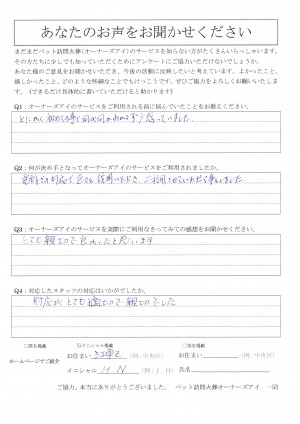 あなたのお声をお聞かせください
まだまだペット訪問火葬(オーナーズアイ)のサービスを知らない方がたくさんいらっしゃいます。
そのかたちに少しでも知っていただくためにアンケートにご協力いただけないでしょうか。
あなた様のご意見をお聞かせいただき、今後の活動に反映したいと考えています。よかったこと、
嬉しかったこと、どのような些細なことでもけっこうです。ぜひご協力をよろしくお願いいたしま
す。(できるだけ具体的に書いていただけると助かります)
Q1:オーナーズアイのサービスをご利用される前に悩んでいたことをお教えください。
とにかく初めての事で何が何かわからず困っていました
Q2:何が決め手となってオーナーズアイのサービスをご利用されましたか。
対応で
ご利用させていただく事にしました
Q3:オーナーズアイのサービスを実際にご利用なさってみての感想をお聞かせください。
とても親切で良かったと思います
Q4:対応したスタッフの対応はいかがでしたか。
対応がとても親切で親切でした
□匿名掲載 ☑イニシャル掲載 □実名掲載
ホームページでご紹介
お住まい 江東区 (例:中央区) お住まい (例:中央区)
イニシャル H N (例:J.H) 氏名
ご協力、本当にありがとうございました。 ペット訪問火葬オーナーズアイ 一同